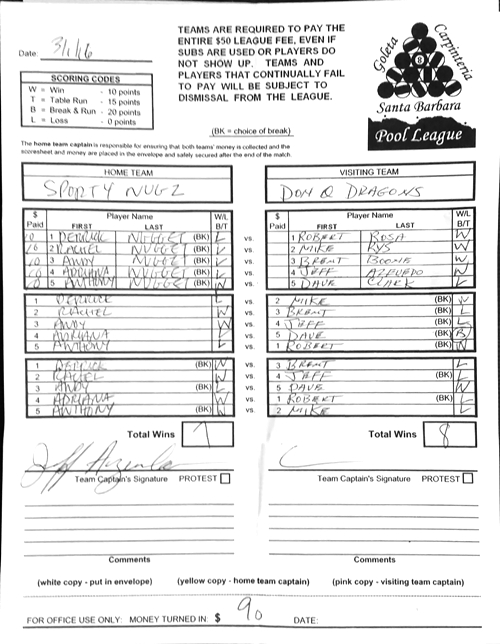 Date: 3/1/16
TEAMS ARE REQUIRED TO PAY THE
ENTIRE $50 LEAGUE FEE, EVEN IF
SUBS ARE USED OR PLAYERS DO
NOT SHOW UP. TEAMS AND
PLAYERS THAT CONTINUALLY FAIL
TO PAY WILL BE SUBJECT TO
DISMISSAL FROM THE LEAGUE.
(BK = choice of break)
Goleta
Carpinteria
8
Santa Barbara
Pool League
SCORING CODES
W = Win - 10 points
T = Table Run - 15 points
B = Break & Run - 20 points
L = Loss - 0 points
The home team captain is responsible for ensuring that both teams' money is collected and the
scoresheet and money are placed in the envelope and safely secured after the end of the match.
HOME TEAM VISITING TEAM
SPORTY NUGZ DON Q DRAGONS
$ Paid Player Name FIRST LAST W/L B/T $ Paid Player Name FIRST LAST W/L B/T
10 1 DERRICK NUGGET (BK) L vs. 1 ROBERT ROSA W
10 2 RACHEL NUGGET (BK) L vs. 2 MIKE RYS W
10 3 ANDY NUGGET (BK) L vs. 3 BRENT BOONE W
10 4 ADRIANA NUGGET (BK) L vs. 4 JEFF AZEVEDO W
10 5 ANTHONY NUGGET (BK) W vs. 5 DAVE CLARK L
1 DERRICK L vs. 2 MIKE (BK) W
2 RACHEL W vs. 3 BRENT (BK) L
3 ANDY W vs. 4 JEFF (BK) L
4 ADRIANA L vs. 5 DAVE (BK) B
5 ANTHONY L vs. 1 ROBERT (BK) W
1 DERRICK (BK) W vs. 3 BRENT L
2 RACHEL W vs. 4 JEFF (BK) L
3 ANDY (BK) L vs. 5 DAVE W
4 ADRIANA W vs. 1 ROBERT (BK) L
5 ANTHONY (BK) W vs. 2 MIKE L
Total Wins 7 Total Wins 8
Team Captain's Signature PROTEST Team Captain's Signature PROTEST
Comments Comments
(white copy - put in envelope) (yellow copy - home team captain) (pink copy - visiting team captain)
FOR OFFICE USE ONLY: MONEY TURNED IN: $ 90 DATE: